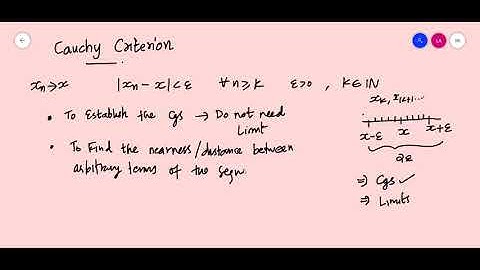 Cauchy Criterion
xn → x |xn - x| < ε ∀ n ≥ K ε > 0 , K ∈ IN
• To Establish the Cgs → Do not need
Limit
• To Find the nearness / distance between
arbitrary terms of the seqn.
xK, xK+1...
x-ε x x+ε
2ε
⇒ Cgs ✓
⇒ Limits